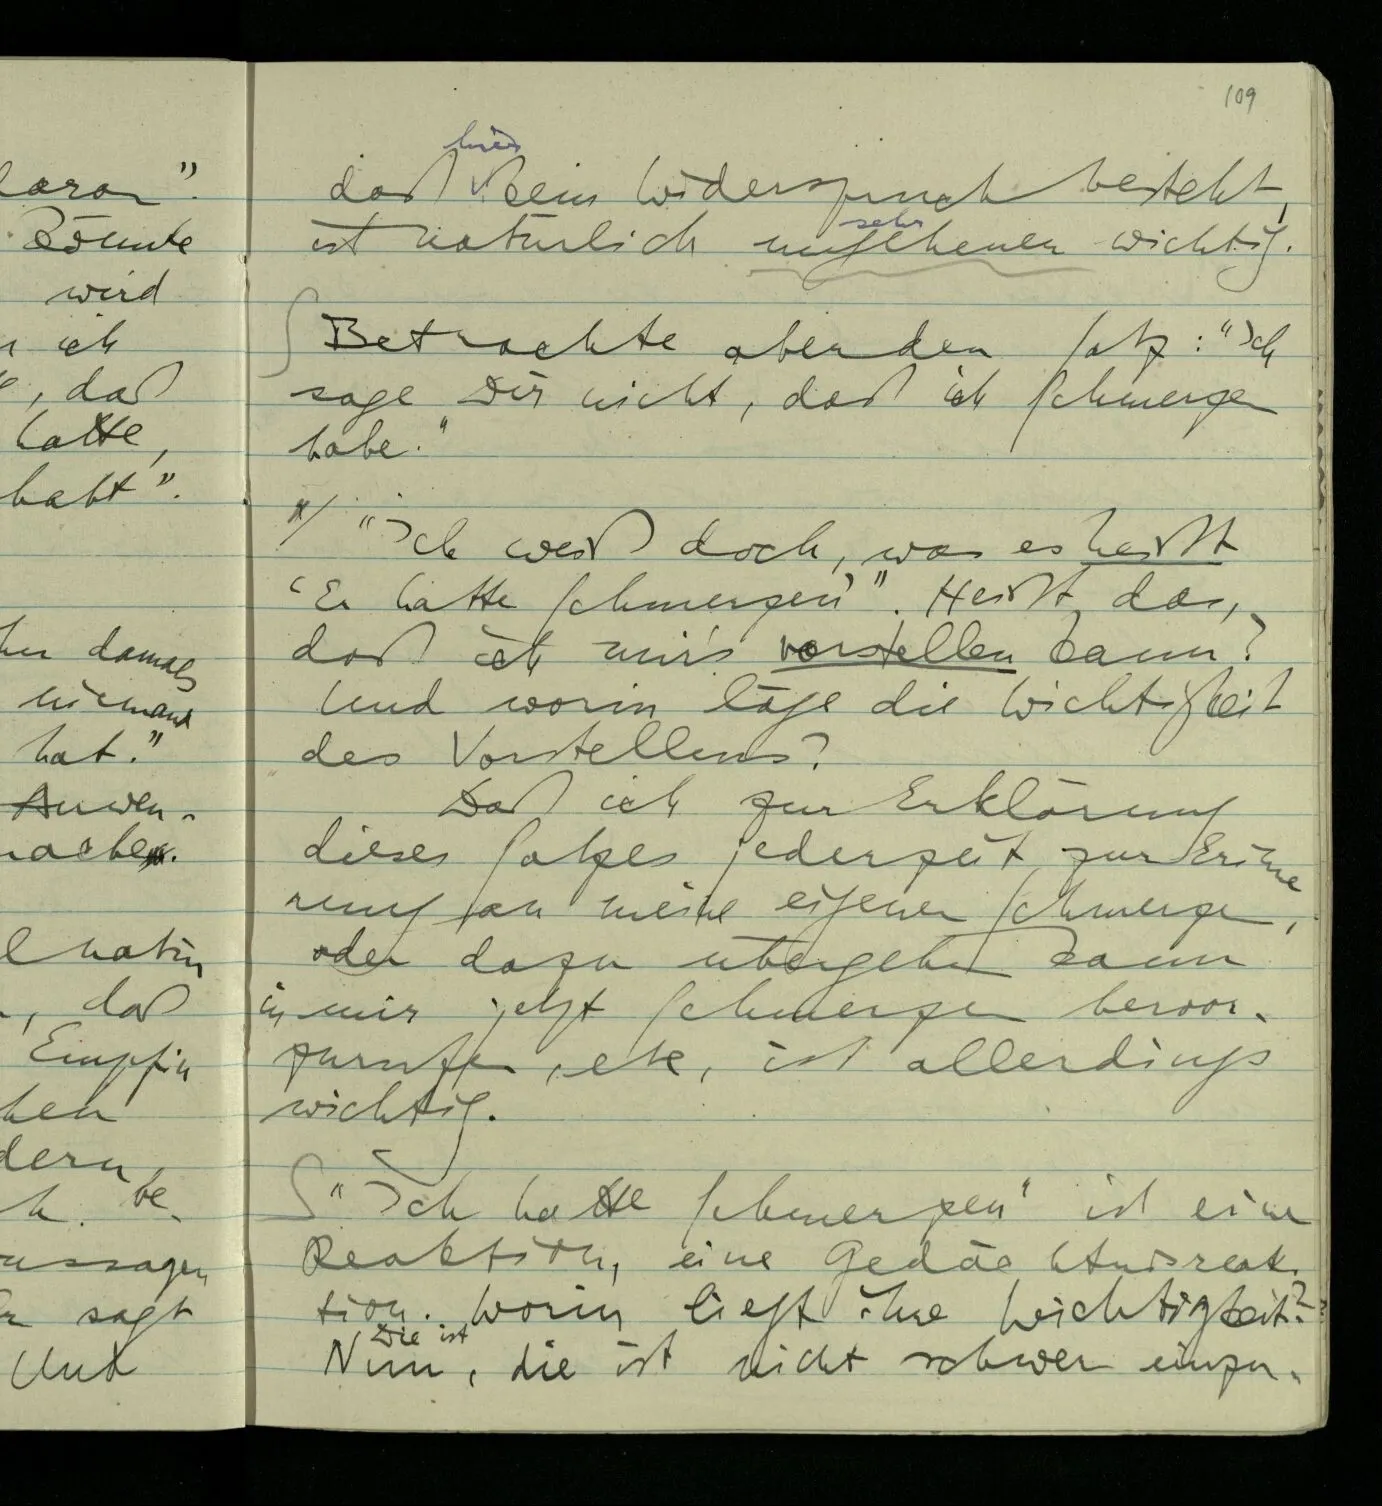 109
daran".
könnte
wird
ich
, daß
hatte,
habt".
damals
niemand
hat."
Anwen-
machen.
natür
, daß
Empfin
hen
dern,
h. be-
aussagen
er sagt
Und
hier
daß kein Widerspruch besteht,
sehr
ist natürlich ungeheuer wichtig.
∫ Betrachte aber den Satz: "Ich
sage Dir nicht, daß ich Schmerzen
habe."
*/ "Ich weiß doch, was es heißt
‘Er hatte Schmerzen’". Heißt das,
daß ich mir's vorstellen kann?
Und worin läge die Wichtigkeit
des Vorstellens?
Daß ich zur Erklärung
dieses Satzes jederzeit zur Erinne
rung an meine eigenen Schmerzen,
oder dazu übergehen kann
in mir jetzt Schmerzen hervor-
zurufen, etc, ist allerdings
wichtig.
∫ "Ich hatte Schmerzen" ist eine
Reaktion, eine Gedächtnisreak-
tion. Worin liegt ihre Wichtigkeit?
Die ist
Nun, die ist nicht schwer einzu-